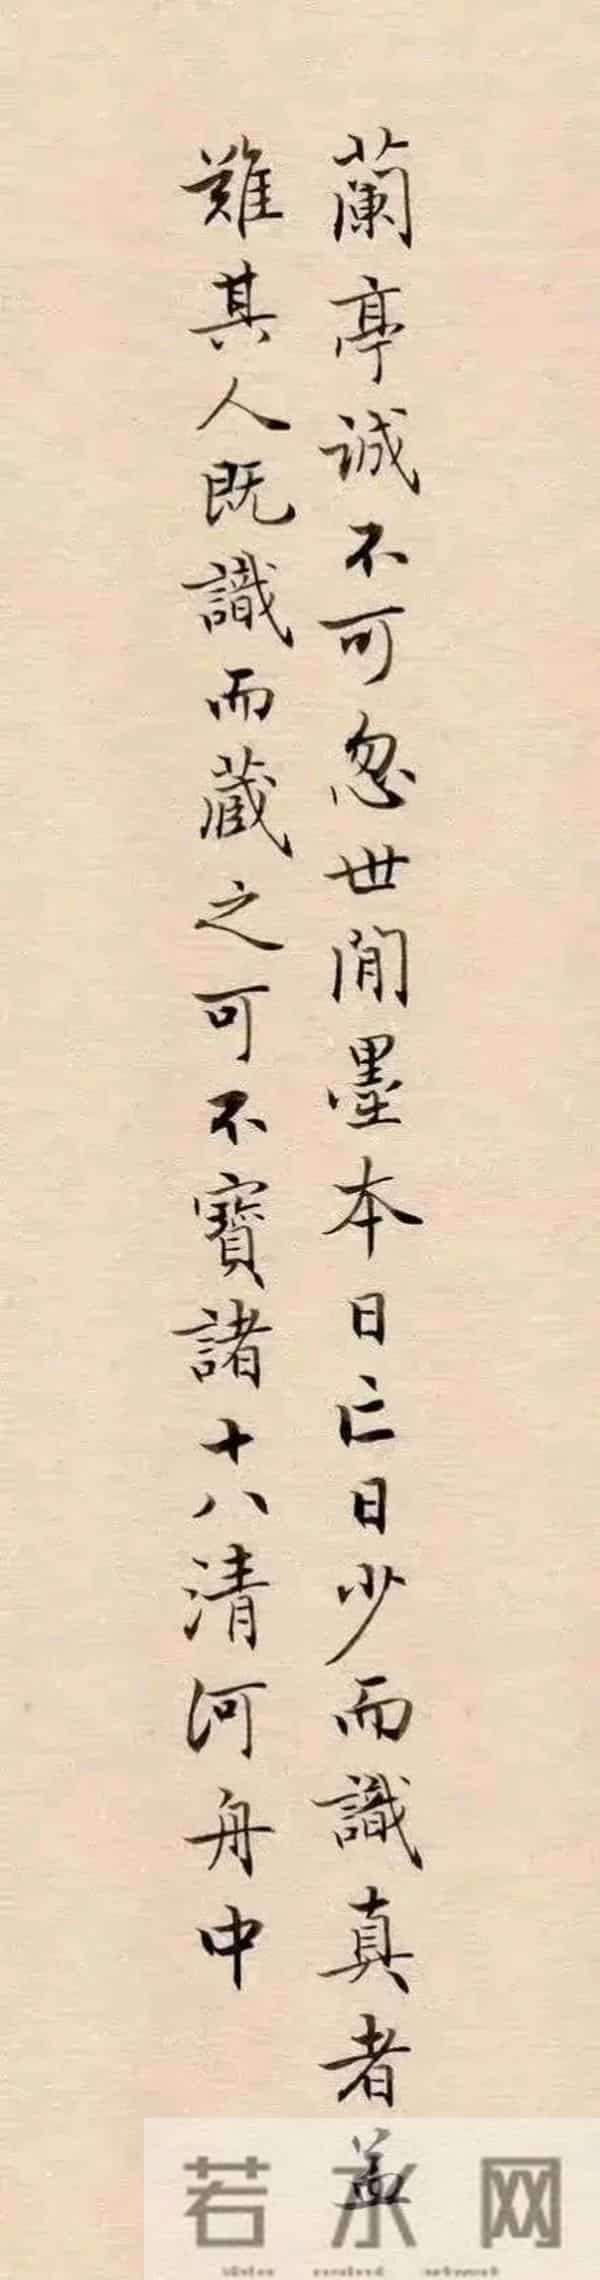 蘭亭誠不可忽世間墨本日亡日少而識真者盖
難其人既識而藏之可不寶諸十八清河舟中
若水网